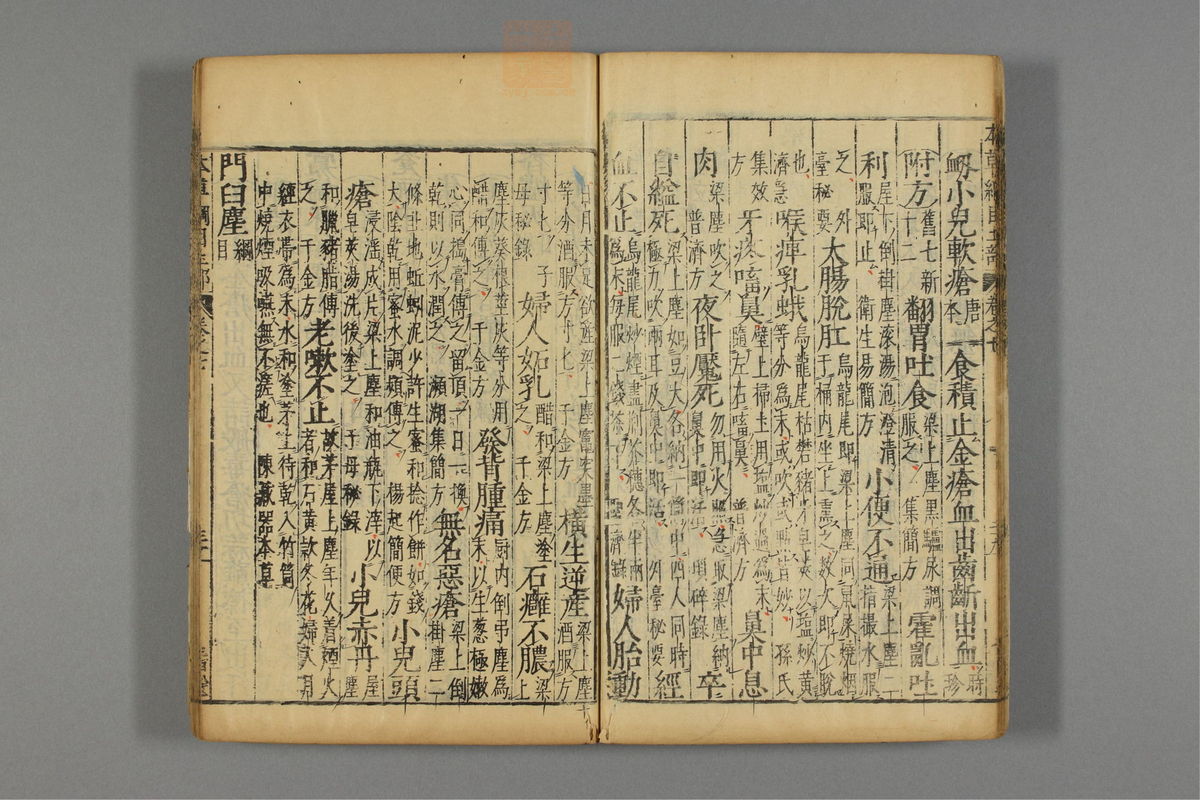 衄小兒軟瘡唐本食積止金瘡血出齒齗出血時珍
附方舊七新十二翻胃吐食梁上塵黑驢尿調服之集簡方霍亂吐
利屋下倒掛塵滚湯泡澄清服即止衛生易簡方小便不通梁上塵二指撮水服
之外臺秘要大腸脫肛烏龍尾即梁上塵同鼠屎燒烟于桶内坐上熏之數次即不脫
也濟急喉痺乳蛾烏龍尾枯礬豬牙皂莢以鹽炒黄等分為末或吹或點皆妙孫氏
集效方牙疼㗜鼻壁上掃土用鹽炒過為末隨左右㗜鼻普濟方鼻中息
肉梁塵吹之普濟方夜卧魘死勿用火照急取梁塵納鼻中即活瑣碎錄卒
自縊死梁上塵如豆大各納一筒中四人同時極力吹兩耳及鼻中即活外臺秘要經
血不止烏龍尾炒烟盡荆芥穗各半兩為末每服二錢茶下聖濟錄婦人胎動
日月未足欲產梁上塵竈突墨等分酒服方寸匕千金方横生逆産梁上塵酒服方
寸匕子母秘錄婦人妬乳醋和梁上塵塗之千金方石癰不膿梁上
塵灰葵根莖灰等分用醋和傅之千金方發背腫痛厨内倒弔塵為末以生葱極嫩
心同搗膏傅之留頂一日一換乾則以水潤之瀕湖集簡方無名惡瘡梁上倒掛塵二
條韭地蚯蚓泥少許生蜜和捻作餅如錢大陰乾用蜜水調頻傅之楊起簡便方小兒頭
瘡浸淫成片梁上塵和油瓶下滓以皂莢湯洗後塗之子母秘錄小兒赤丹屋塵
和臘豬脂傅之千金方老嗽不止故茅屋上塵年久着烟火者和石黄款冬花婦人月
經衣帶為末水和塗茅上待乾入竹筒中燒煙吸嚥無不瘥也陳藏器本草
門臼塵綱目